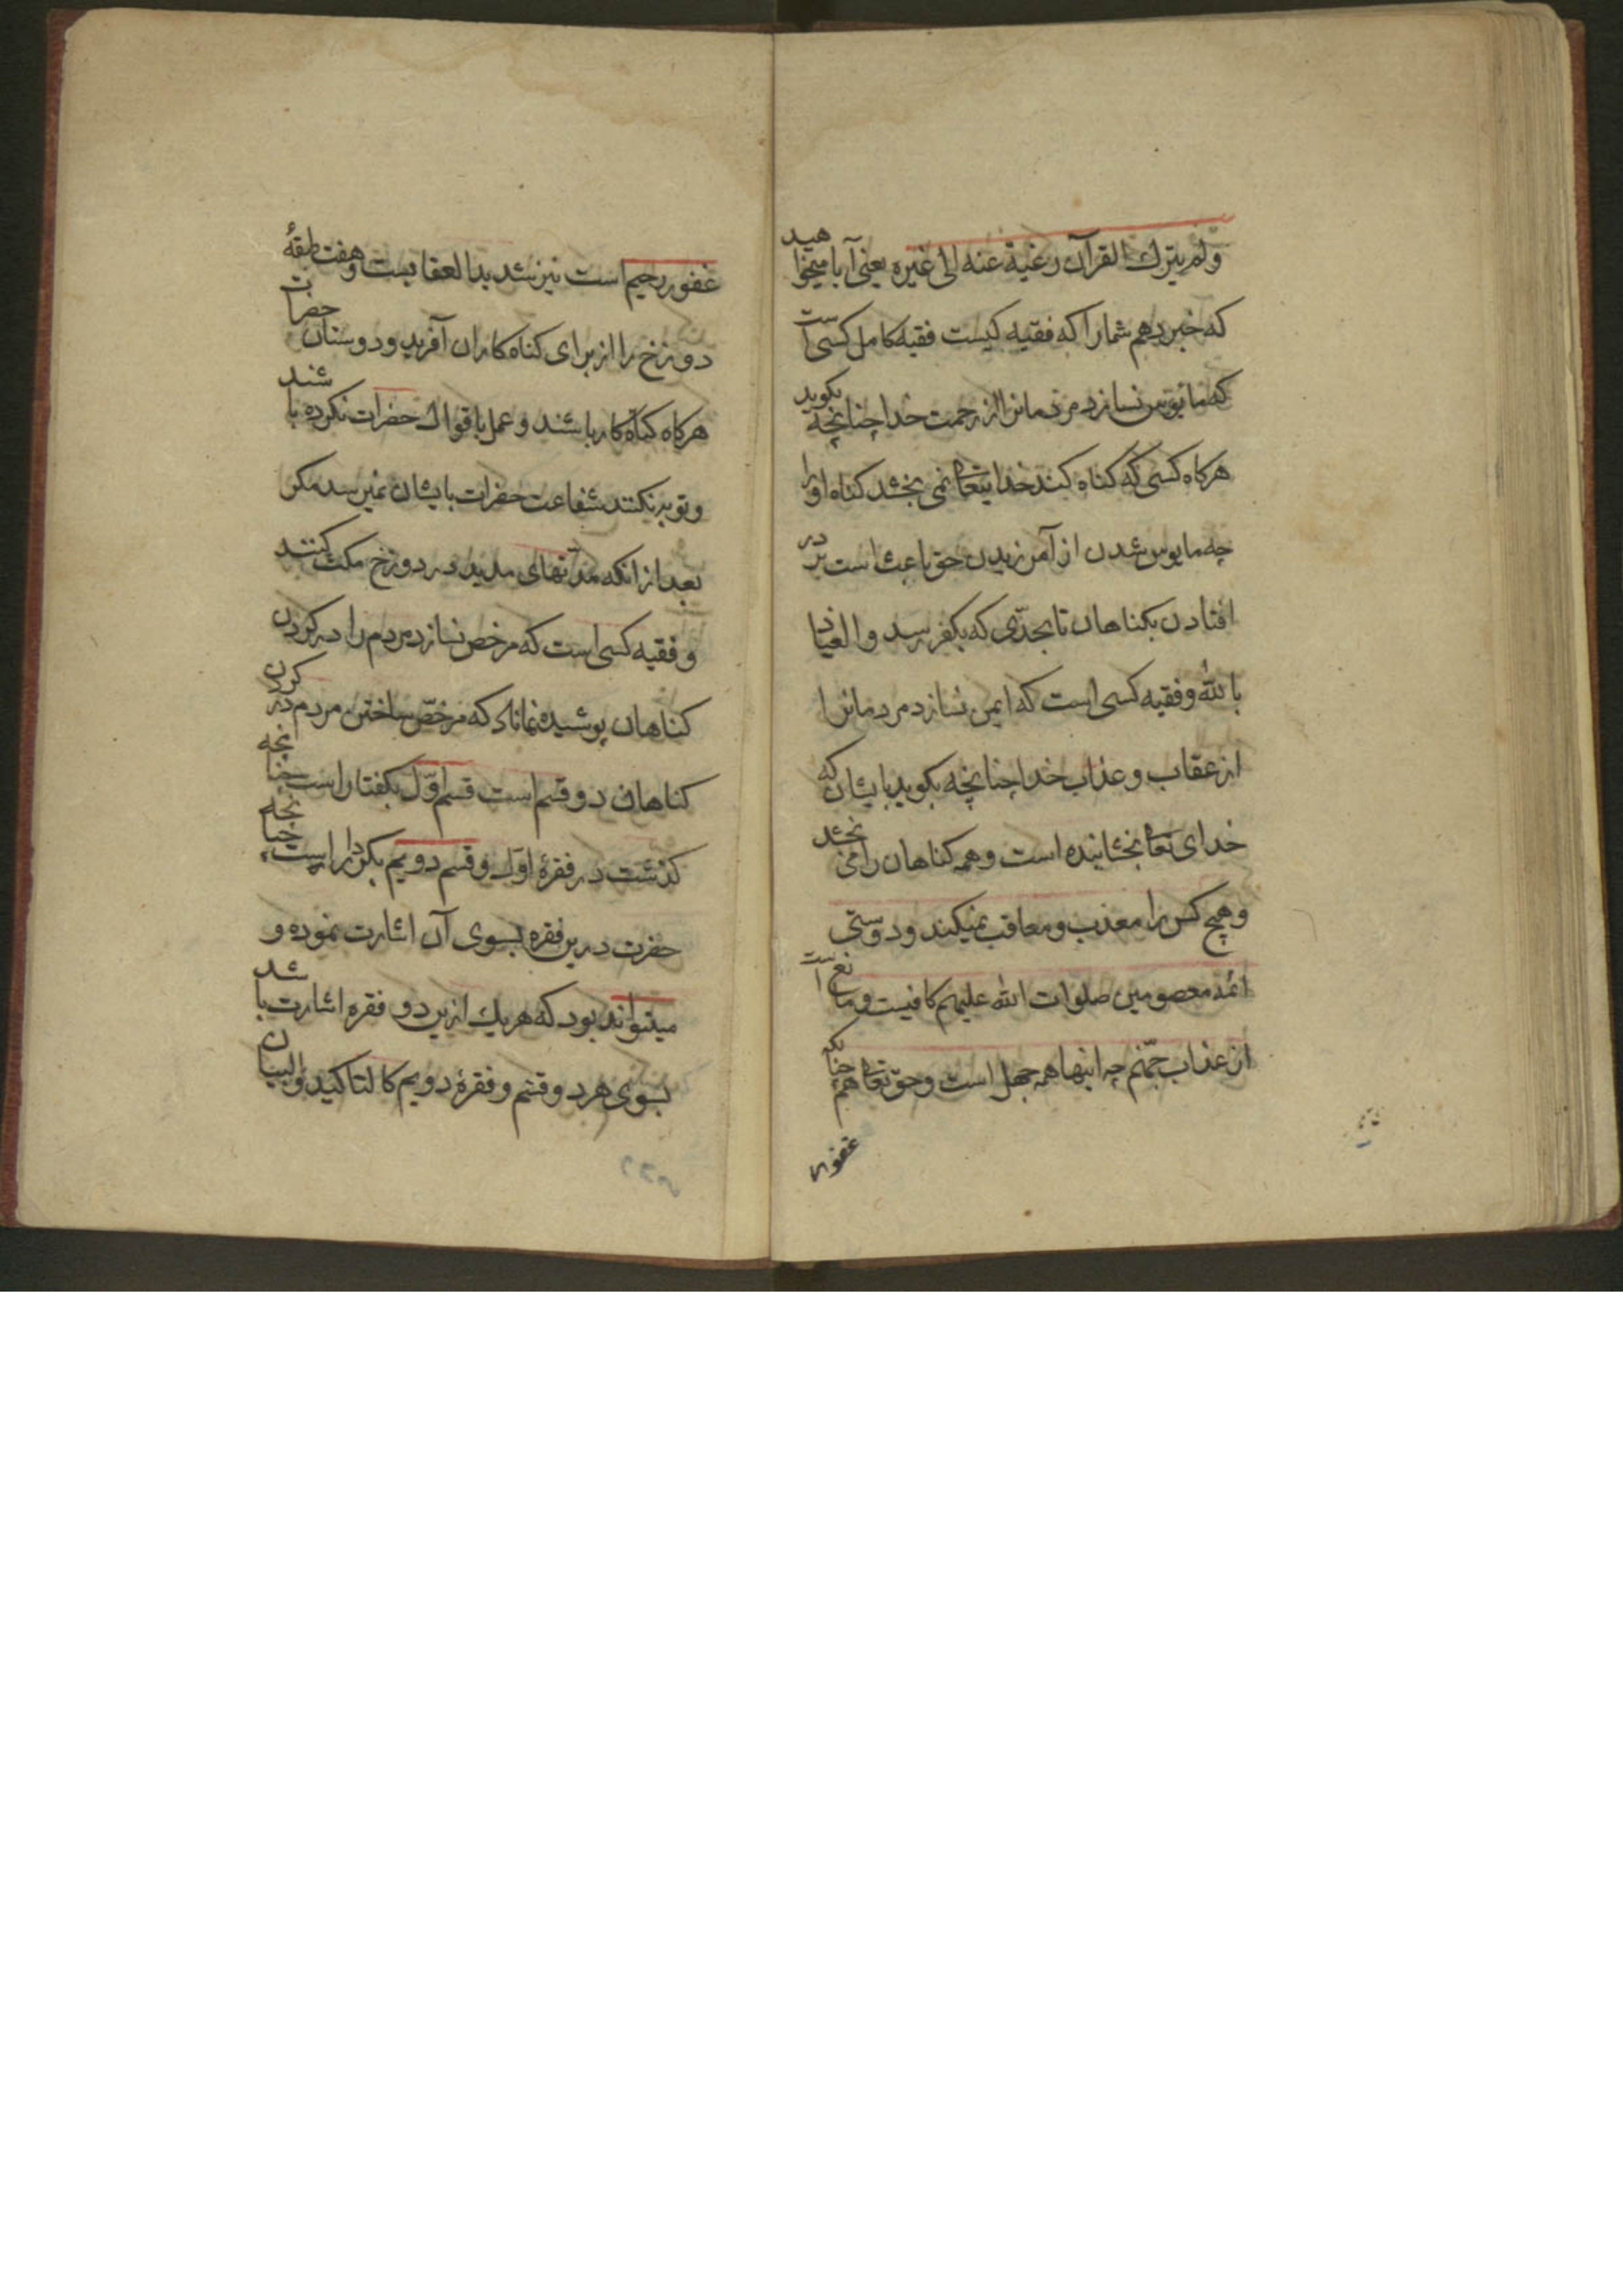 ولم یترك القرآن رغبة عنه الی غیره یعنی آیا میخواهید
که خبر دهم شما را که فقیه کیست فقیه کامل کسی است
که مایوس نسازد مردمانرا از رحمت خدا چنانچه بکوید
هرکاه کسی که کناه کند خدایتعا نمی بخشد کناه او را
چه مایوس شدن از آمرزیدن حق باعث است بر در
افتادن بکناهان تا بحدّی که بکفر رسد و العیاذ
بالله و فقیه کسی است که ایمن نسازد مردمانرا
از عقاب و عذاب خدا چنانچه بکوید بایشان که
خدای تعا بخشاینده است و همه کناهان را می بخشد
و هیچ کس را معذب و معاقب نمیکند و دوستی
ائمه معصومین صلوات الله علیهم کافیست و مانع است
از عذاب جهّنم چه اینها همه جهل است و حق تعا همچنانکه
غفور
غفور رحیم است نیز شدید العقابست و هفت طبقهٔ
دوزخ را از برای کناه کاران آفرید و دوستان حضرات
هرکاه کناه کار باشند و عمل باقوال حضرات نکرده باشند
و توبه نکنند شفاعت حضرات بایشان نمیرسد مکر
بعد از انکه مدّتهای مدید در دوزخ مکث کنند
و فقیه کسی است که مرخص نسازد مردم را در کردن
کناهان پوشیده نماناد که مرخصّ ساختن مردم در کردن
کناهان دو قسم است قسم اوّل بکفتار است چنانچه
کذشت در فقرهٔ اوّل و قسم دویم بکردار است چنانچه
حضرت درین فقره بسوی آن اشارت نموده و
میتواند بود که هر یك ازین دو فقره اشارت باشد
بسوی هر دو قسم و فقرهٔ دویم کا لتاکید و البیان